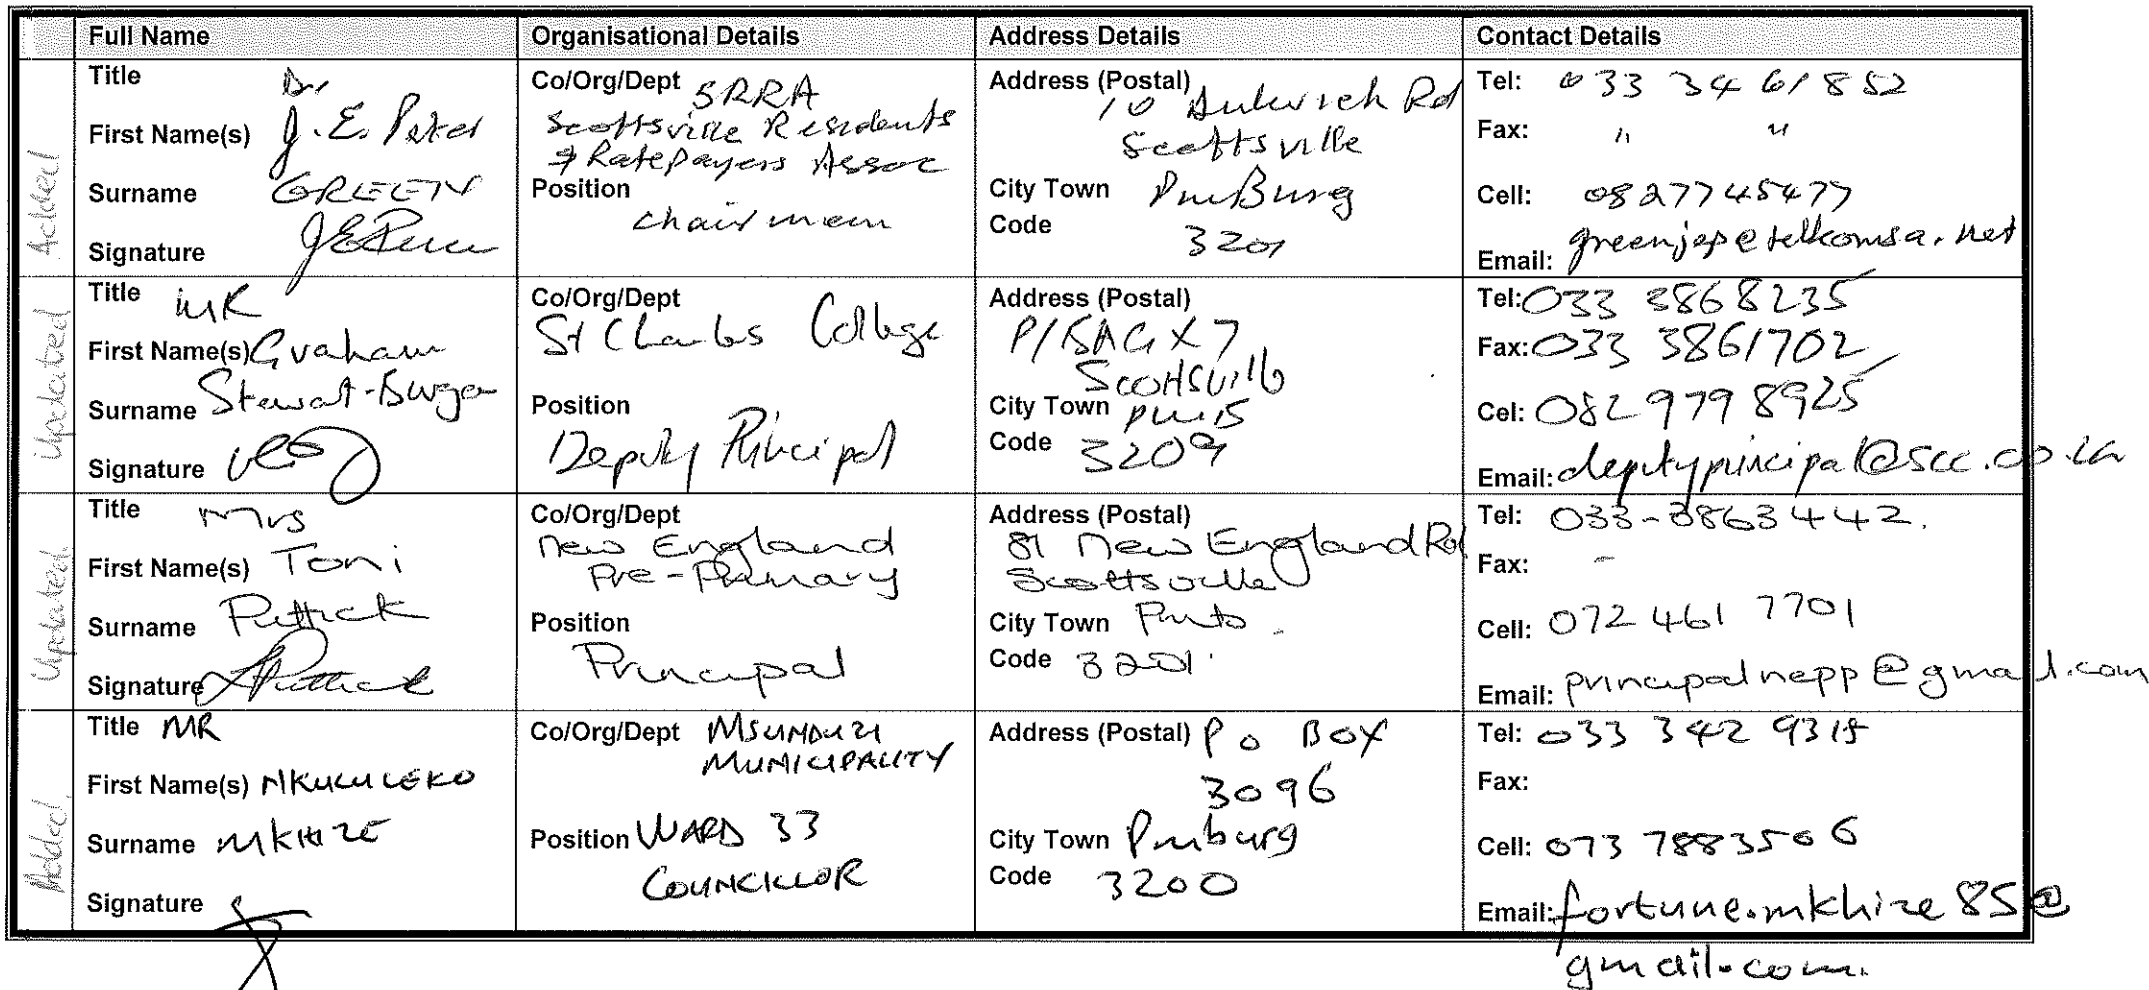 Full Name Organisational Details Address Details Contact Details
Added
Title Dr
First Name(s) J. E. Peter
Surname GREEN
Signature
Co/Org/Dept SRRA
Scottsville Residents
& Ratepayers Assoc
Position
Chairman
Address (Postal) 10 Dulwich Rd
Scottsville
City Town PmBurg
Code 3201
Tel: 033 34 61852
Fax: " "
Cell: 0827745477
Email: greenjep@telkomsa.net
Updated
Title MR
First Name(s) Graham
Surname
Signature
Co/Org/Dept
St Charles College
Position
Deputy Principal
Address (Postal)
P/BAG X7
Scottsville
City Town PMB
Code 3209
Tel: 033 3868235
Fax: 033 3861702
Cel: 082 979 8925
Email: deputyprincipal@scc.co.za
Updated
Title Mrs
First Name(s) Toni
Surname Puttick
Signature
Co/Org/Dept
New England
Pre-Primary
Position
Principal
Address (Postal)
81 New England Rd
Scottsville
City Town Pmb
Code 3201.
Tel: 033-3863442.
Fax: -
Cell: 072 461 7701
Email: principalnepp@gmail.com
Added
Title MR
First Name(s) NKULULEKO
Surname MKHIZE
Signature
Co/Org/Dept MSUNDUZI
MUNICIPALITY
Position WARD 33
COUNCILLOR
Address (Postal) P O BOX
3096
City Town Pmburg
Code 3200
Tel: 033 342
Fax:
Cell: 073 7883506
Email: fortune.mkhize85@
gmail.com.